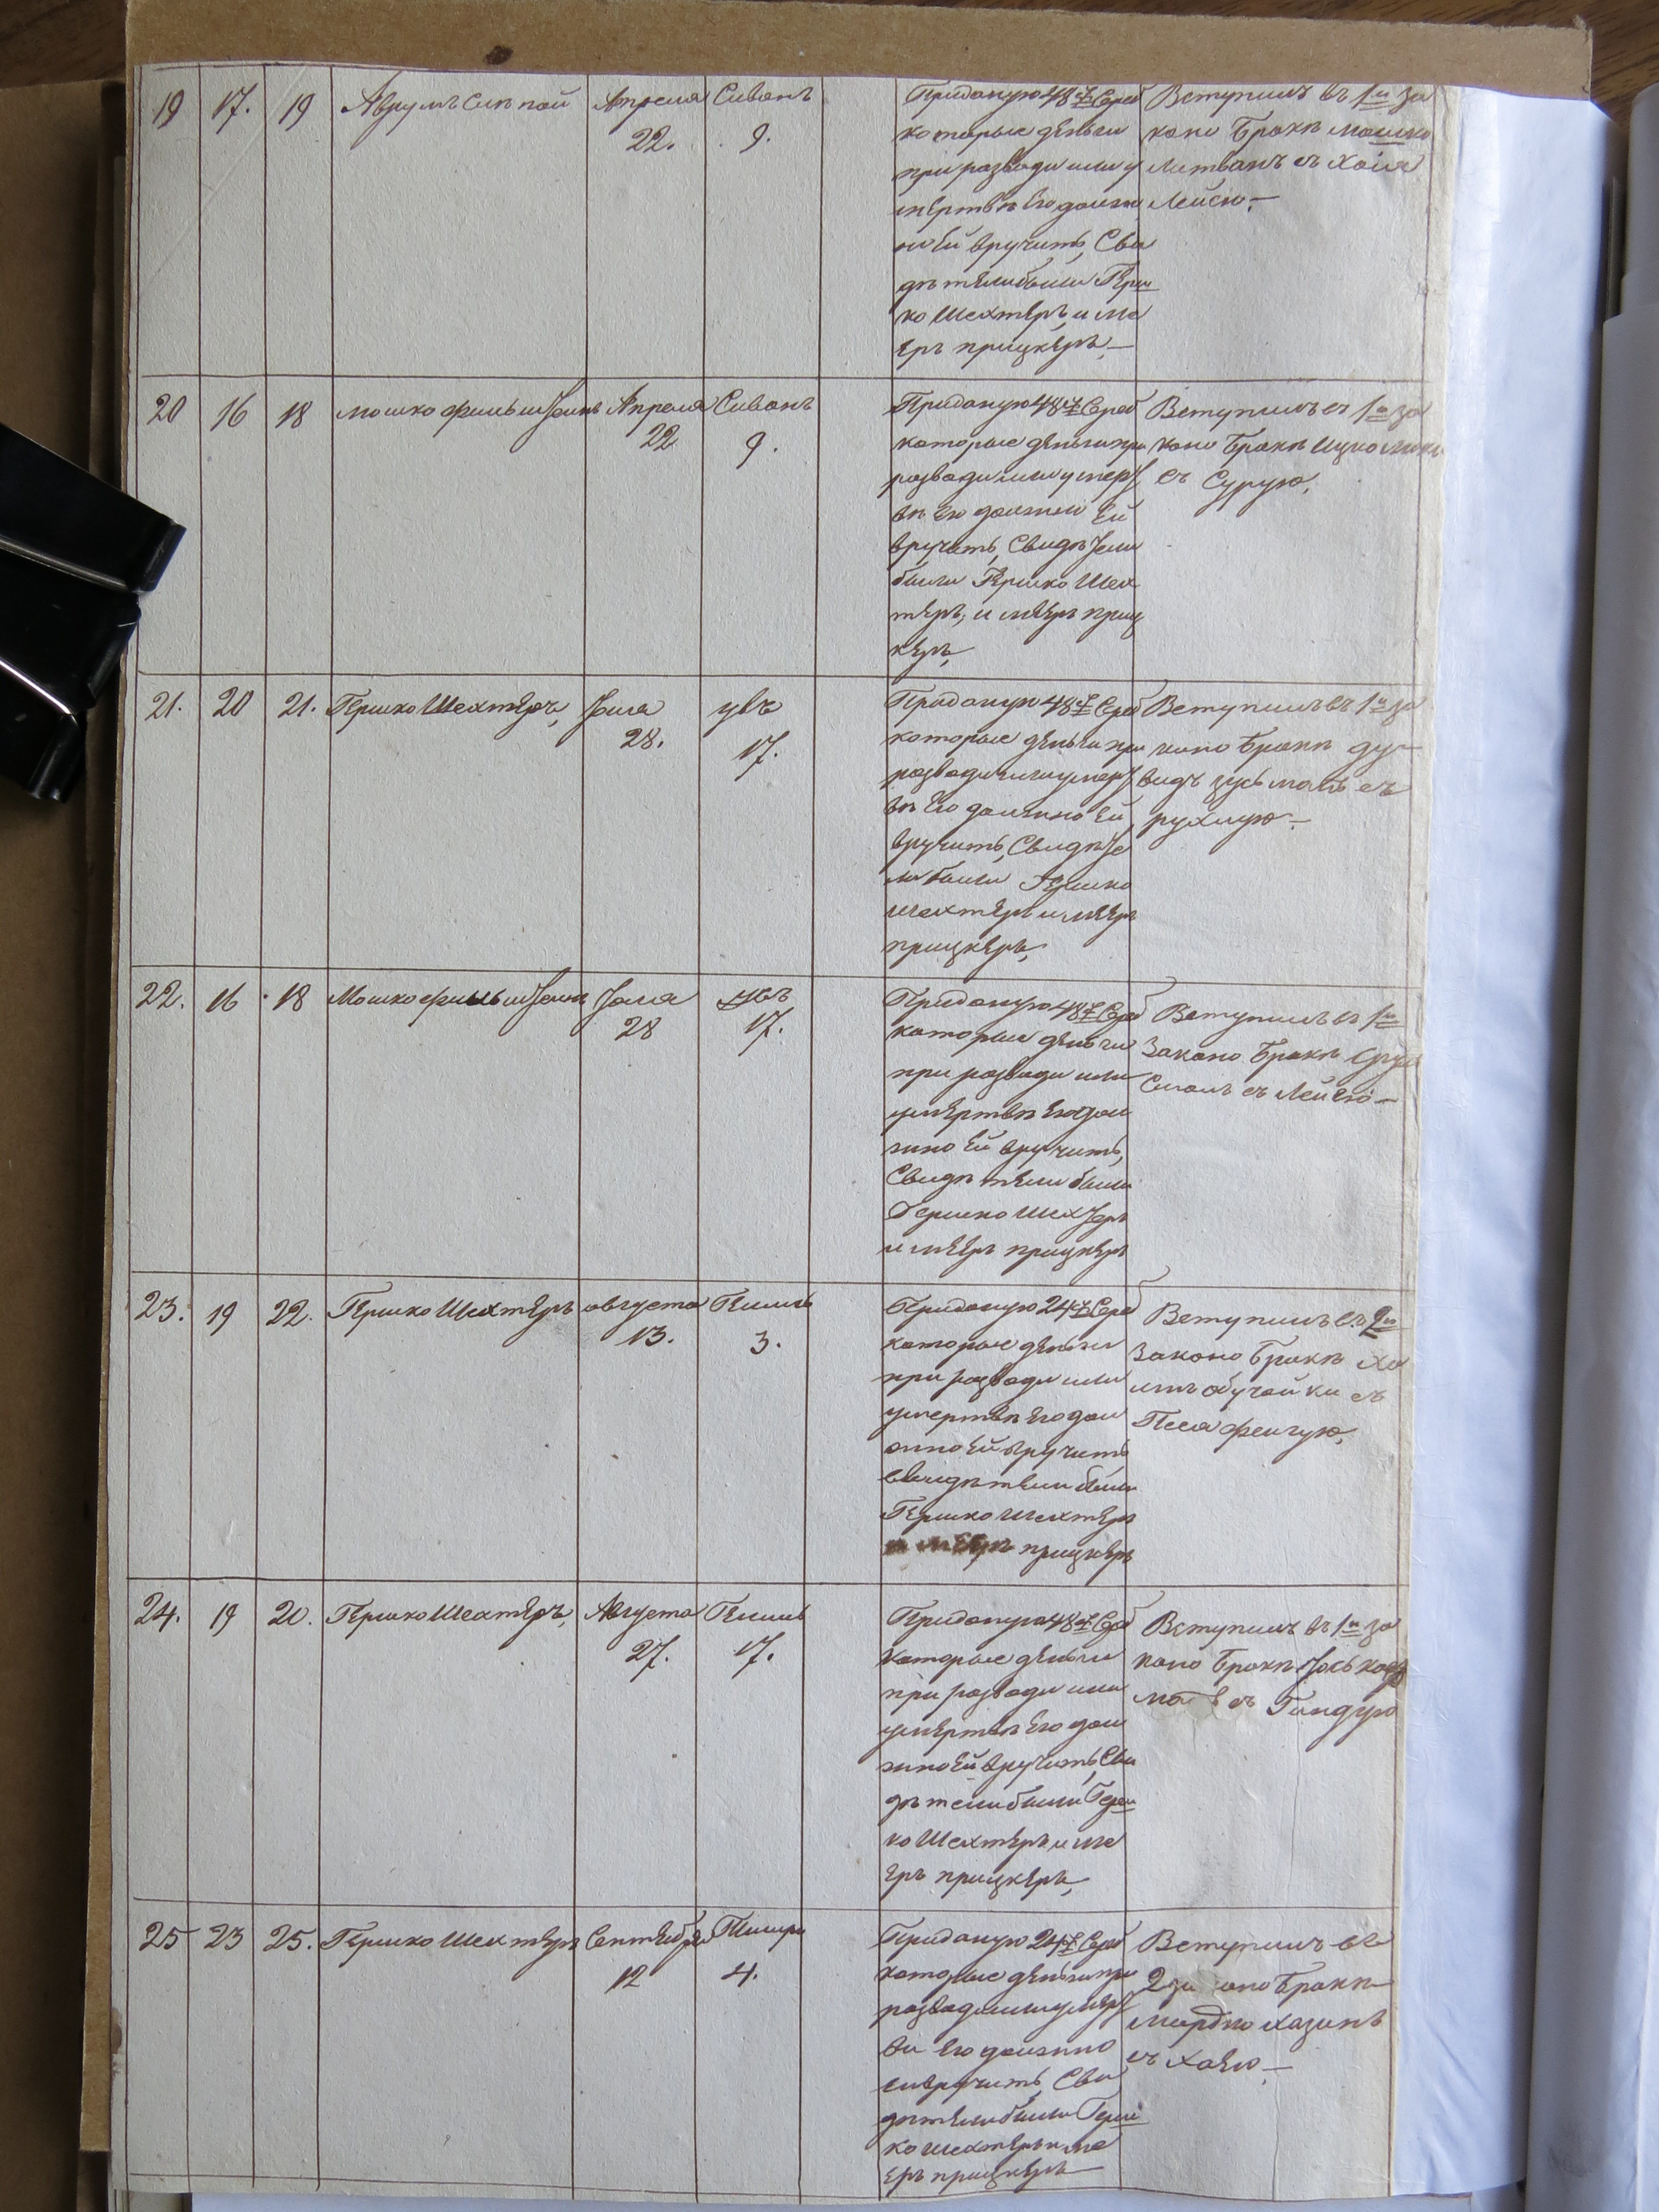 19 17. 19 Аврумъ Слѣпой Апреля Сиванъ
22. 9.
Приданую 48 Сереб
которые деньги
при разводи или у
мертвѣ Его должн
но Ей вручить, Сви
дѣтели были Герш
ко Шехтеръ, и Ме
еръ прицкеръ, —
Вступилъ въ 1й за
коно Бракъ мошко
литванъ съ Хаія
Лейсю, —
20 16 18 мошко финьштейнъ Апреля Сиванъ
22 9.
Приданую 48 Сереб
которые деньги при
разводи или умерт
вѣ Его должно Ей
вручить, Свидѣтели
были Гершко Шех
теръ, и мееръ приц
керъ,
Вступилъ въ 1й за
коно Бракъ Ицко
съ Сурую,
21. 20 21. Гершко Шехтеръ, Іюля
28. 17.
Приданую 48 Сереб
которые деньги при
разводи или умерт
вѣ Его должно Ей
вручить, Свидѣте
ли были Гершко
шехтеръ и мееръ
прицкеръ,
Вступилъ въ 1й за
коно Бракъ ду
видъ зусьманъ съ
рухлую —
22. 16 18 Мошко финьштейнъ Іюля
28 17.
Приданую 48 Сереб
которые деньги
при разводи или
умертвѣ Его дол
жно Ей вручить,
Свидѣтели были
Гершко Шехтеръ
и мееръ прицкеръ
Вступилъ въ 1й
Законо Бракъ Сруль
съ Лейею —
23. 19 22. Гершко Шехтеръ августа Гелилъ
13. 3.
Приданую 24 Сереб
которые деньги
при разводи или
умертвѣ Его дол
жно Ей вручить
свидѣтели были
Гершко шехтеръ
и мееръ прицкеръ
Вступилъ въ 2й
Законо Бракъ Ха
имъ обучайки съ
Песя фейгую,
24. 19 20. Гершко Шехтеръ, Августа Гелилъ
27. 17.
Приданую 48 Сереб
которые деньги
при разводи или
умертвѣ Его дол
жно Ей вручить, Сви
дѣтели были Герш
ко Шехтеръ и ме
еръ прицкеръ,
Вступилъ въ 1й за
коно Бракъ Іось
съ Гиндую
25 23 25. Гершко Шехтеръ Сентебря Тишри
12 4.
Приданую 24 Сереб
которые деньги при
разводи или умерт
ви Его должно
ей вручить, Сви
дѣтели были Герш
ко шехтеръ и ме
еръ прицкеръ —
Вступилъ въ
2 законо Бракъ
мордко хазинъ
съ Хаею, —